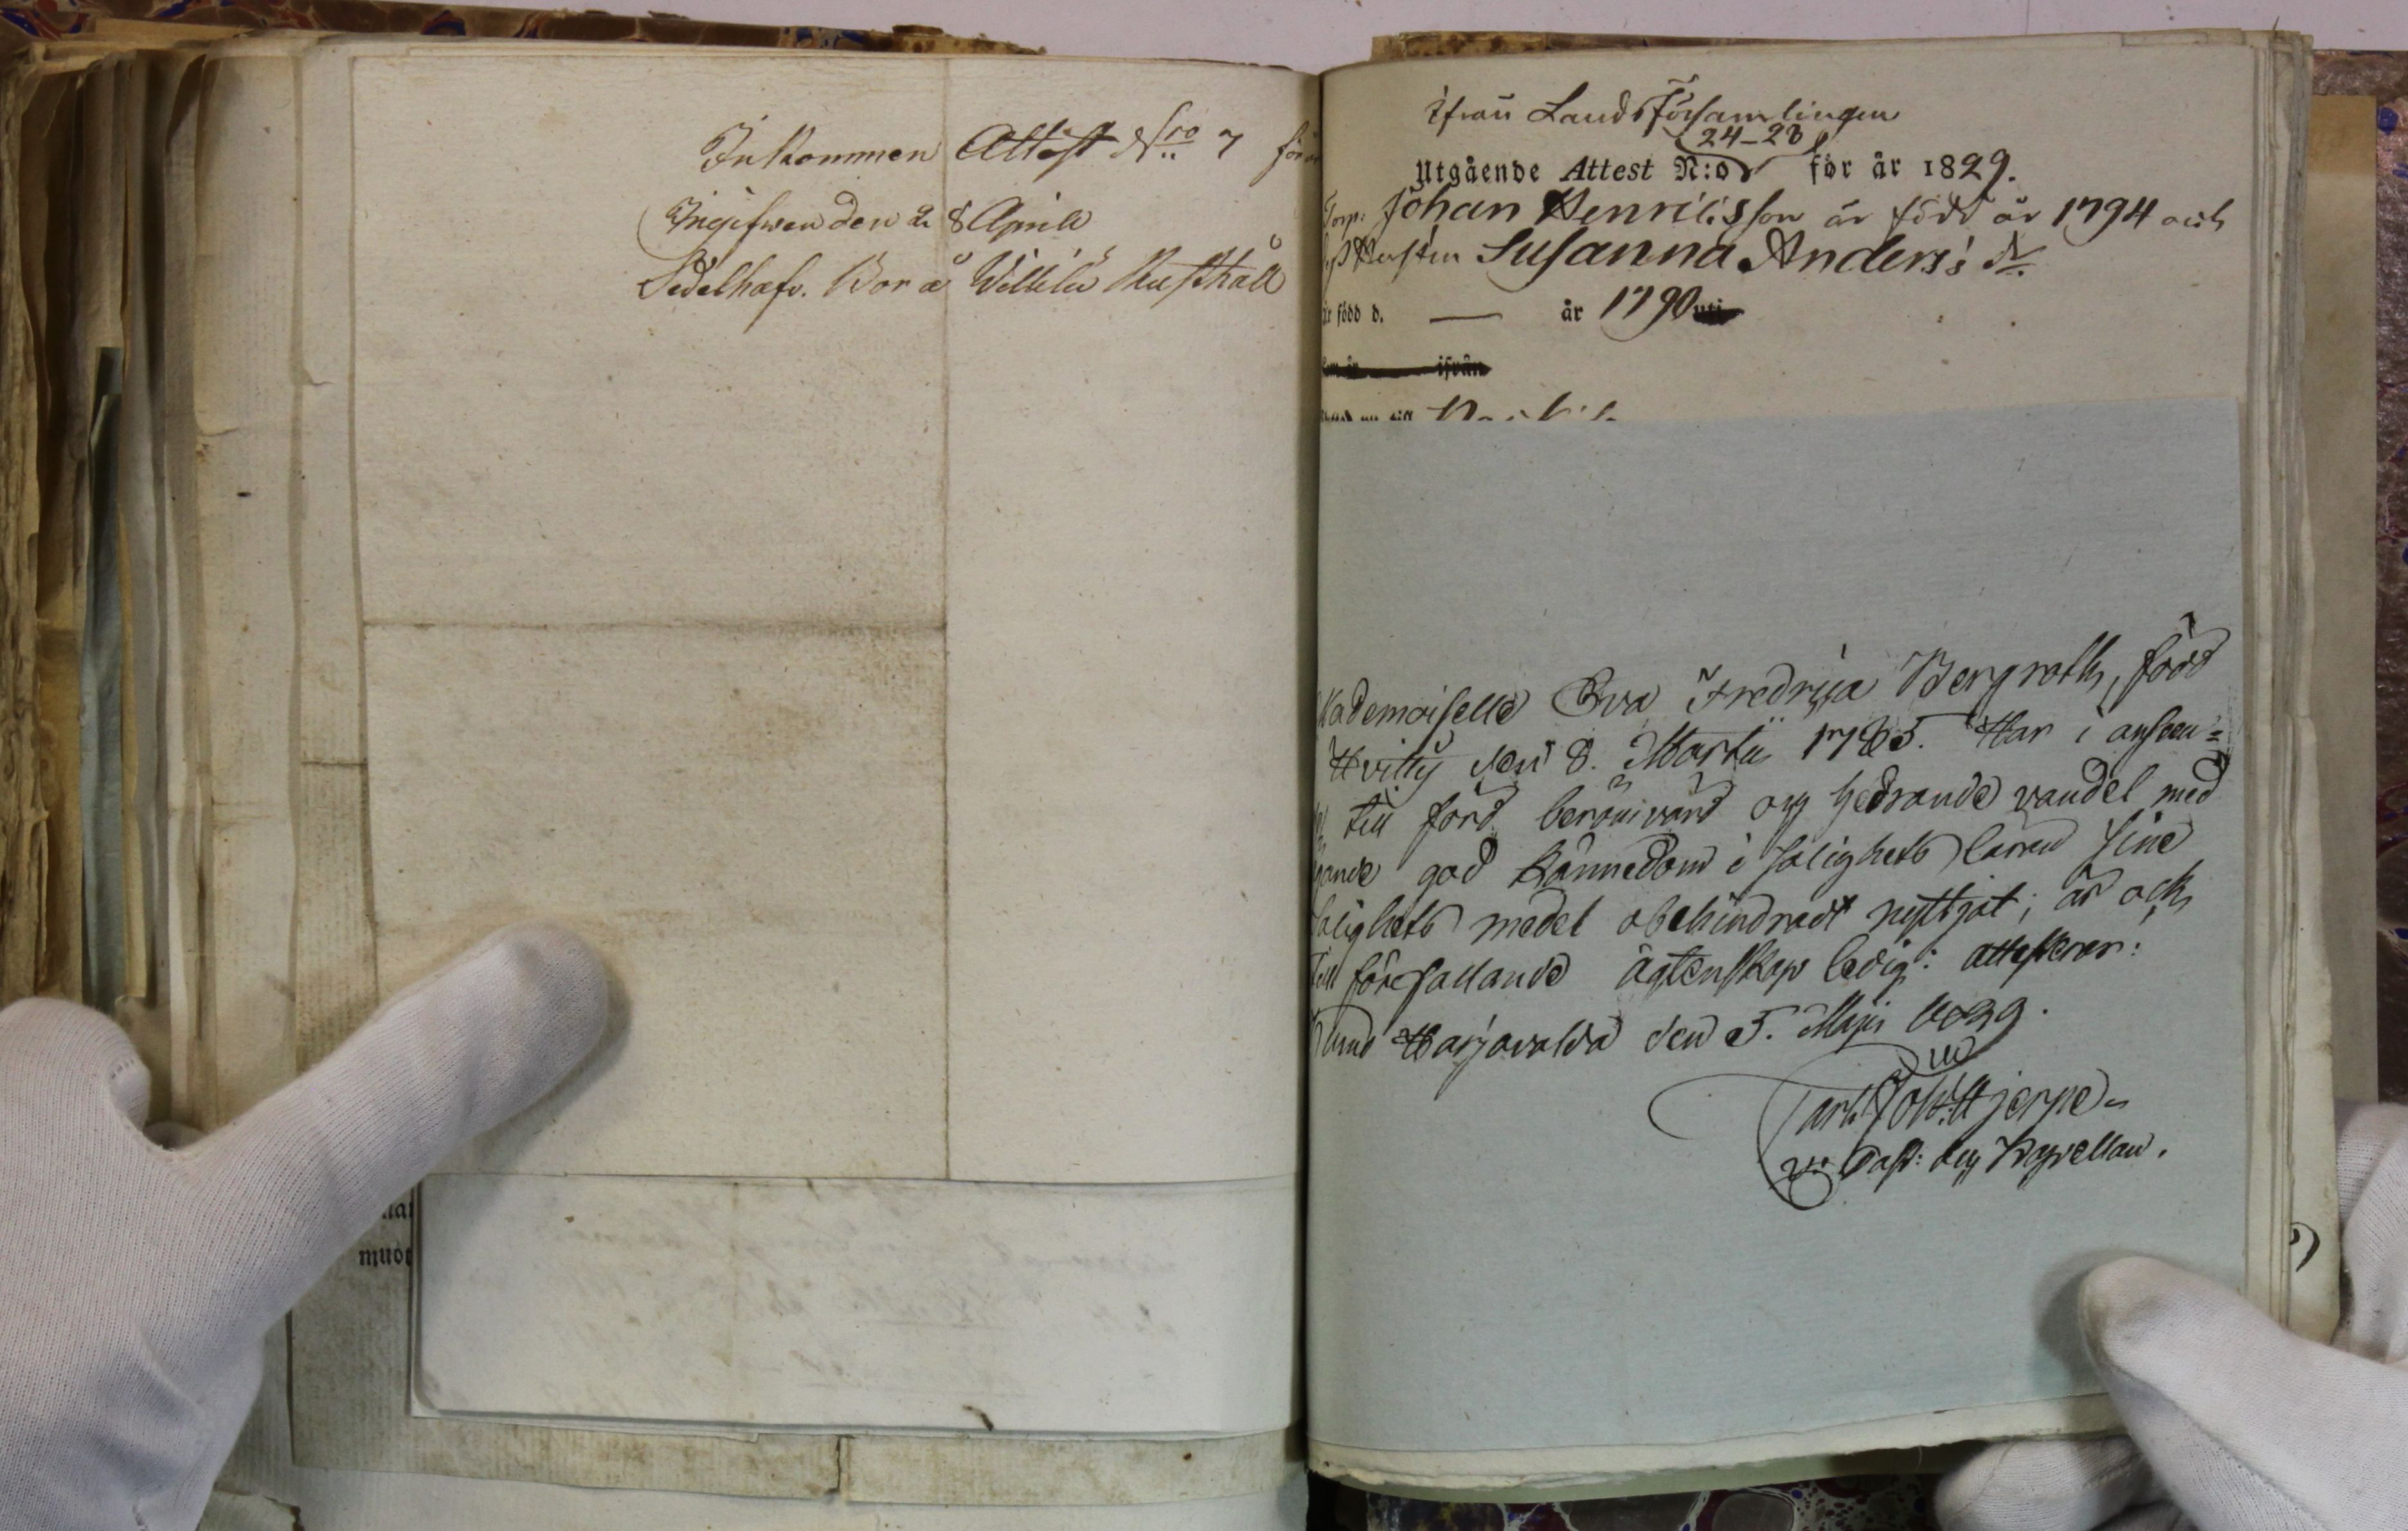 Inkommen Attest N:ro 7 för
Ingifwen den 28 April
Sedelhafv. Bor å Villilä Rusthåll
nai
muot
ifrån Landsförsamlingen
24-23
Utgående Attest N:o för år 1829.
Torp: Johan Henriksson är född år 1794 och
Hustrun Susanna Anders's D:r
är född d. — år 1790 uti
ifrån
Mademoiselle Eva Fredrica Bergroth, född
Hvitty den 8. Martii 1785. Har i anseen=
till förd berömvärd och hedrande vandel med
ägande god kännedom i salighets läran sine
salighets medel obehindradt nyttjat; är och
till förefallande ägtenskap ledig: attesterar:
Harjavalda den 5. Maji 1829.
Joh: Hjerpe
V: Past: och Kapellan.